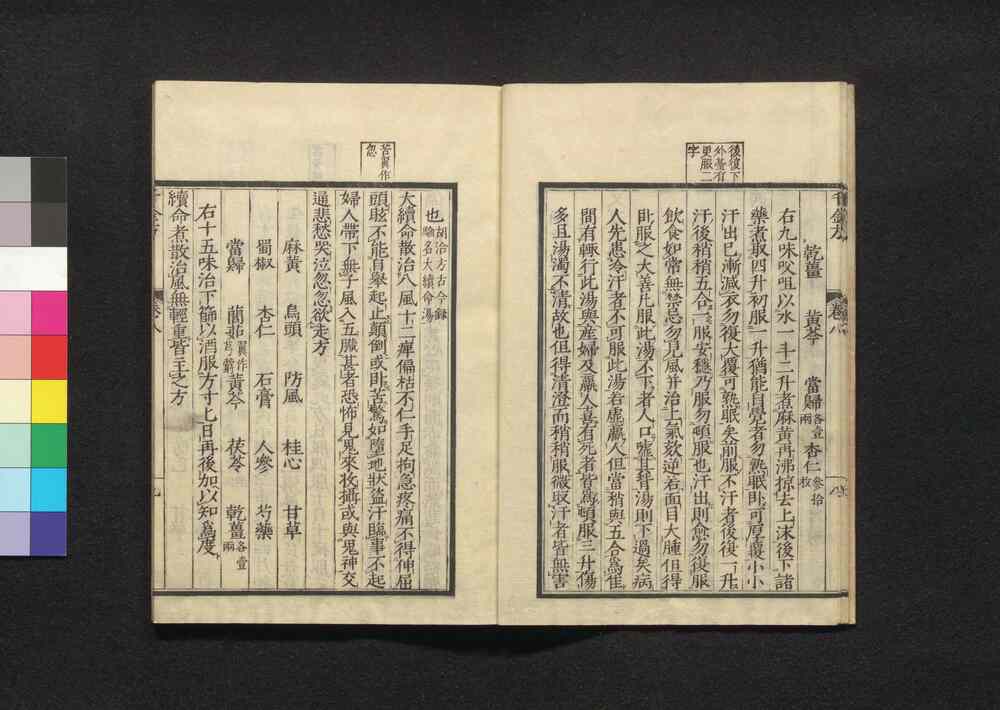 後復下
外臺有
更服二
字
乾薑 黃芩 當歸各壹兩 杏仁參拾枚
右九味㕮咀以水一斗二升煮麻黃再沸掠去上沫後下諸
藥煮取四升初服一升猶能自覺者勿熟眠卧可厚覆小小
汗出已漸減衣勿復大覆可熟眠矣前服不汗者後復一升
汗後稍稍五合一服安穩乃服勿頓服也汗出則愈勿復服
飲食如常無禁忌勿見風并治上氣欬逆若面目大腫但得
卧服之大善凡服此湯不下者人口噓其背湯則下過矣病
人先患冷汗者不可服此湯若虛羸人但當稍與五合爲佳
間有輒行此湯與產婦及羸人喜有死者皆爲頓服三升傷
多且湯濁不清故也但得清澄而稍稍服微取汗者皆無害
千金方 卷八
苦翼作
忽
也胡洽方古今錄驗名大續命湯
大續命散治八風十二痺偏枯不仁手足拘急疼痛不得伸屈
頭眩不能自舉起止顛倒或卧苦驚如墮地狀盜汗臨事不起
婦人帶下無子風入五臟甚者恐怖見鬼來收攝或與鬼神交
通悲愁哭泣忽忽欲走方
麻黃 烏頭 防風 桂心 甘草
蜀椒 杏仁 石膏 人參 芍藥
當歸 䕡茹翼作芎藭 黃芩 茯苓 乾薑各壹兩
右十五味治下篩以酒服方寸匕日再後加以知爲度
續命煮散治風無輕重皆主之方